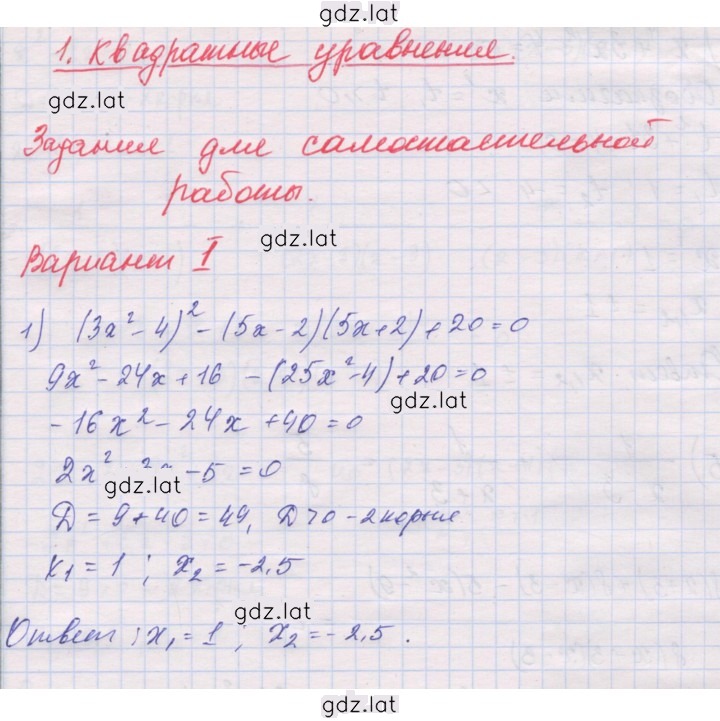 gdz.lat
1. Квадратные уравнения.
gdz.lat
Задания для самостоятельной
работы.
gdz.lat
Вариант I
1) (3x² - 4)² - (5x - 2)(5x + 2) + 20 = 0
9x² - 24x + 16 - (25x² - 4) + 20 = 0
gdz.lat
-16x² - 24x + 40 = 0
2x² - 5 = 0
gdz.lat
D = 9 + 40 = 49, D > 0 - 2 корня
x₁ = 1 ; x₂ = -2,5
gdz.lat
Ответ : x₁ = 1 ; x₂ = -2,5.
gdz.lat